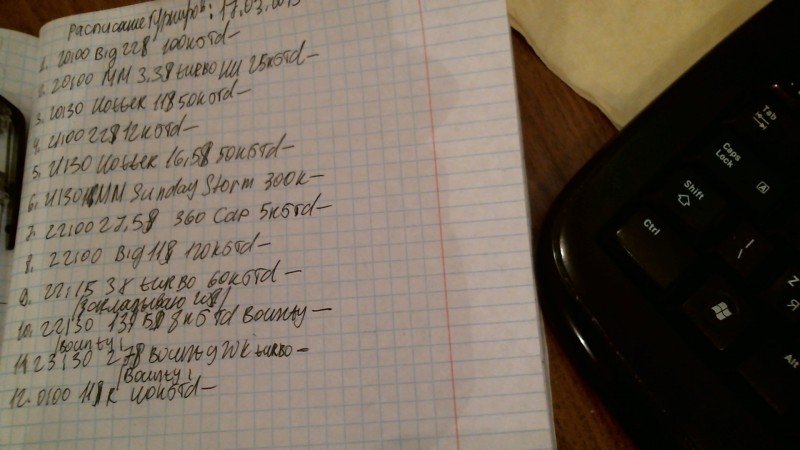 Расписание Турниров: 17.03.
1. 20:00 Big 22$ 100K GTD –
2. 20:00 MM 3.3$ turbo 25K GTD –
3. 20:30 Hotter 11$ 50K GTD –
4. 21:00 22$ 12K GTD –
5. 21:30 Hotter 16,5$ 50K GTD –
6. 21:30 MM Sunday Storm 300K –
7. 22:00 27,5$ 360 Cap 5K GTD –
8. 22:00 Big 11$ 120K GTD –
9. 22:15 3$ turbo 60K GTD –
10. 22:30 8K GTD Bounty –
/Bounty
11. 23:30 27$ Bounty 20K turbo –
/Bounty
12. 0:00 11$ R 40K GTD –
Tab
Caps Lock
A
Shift
Ctrl
Z
Я
Alt